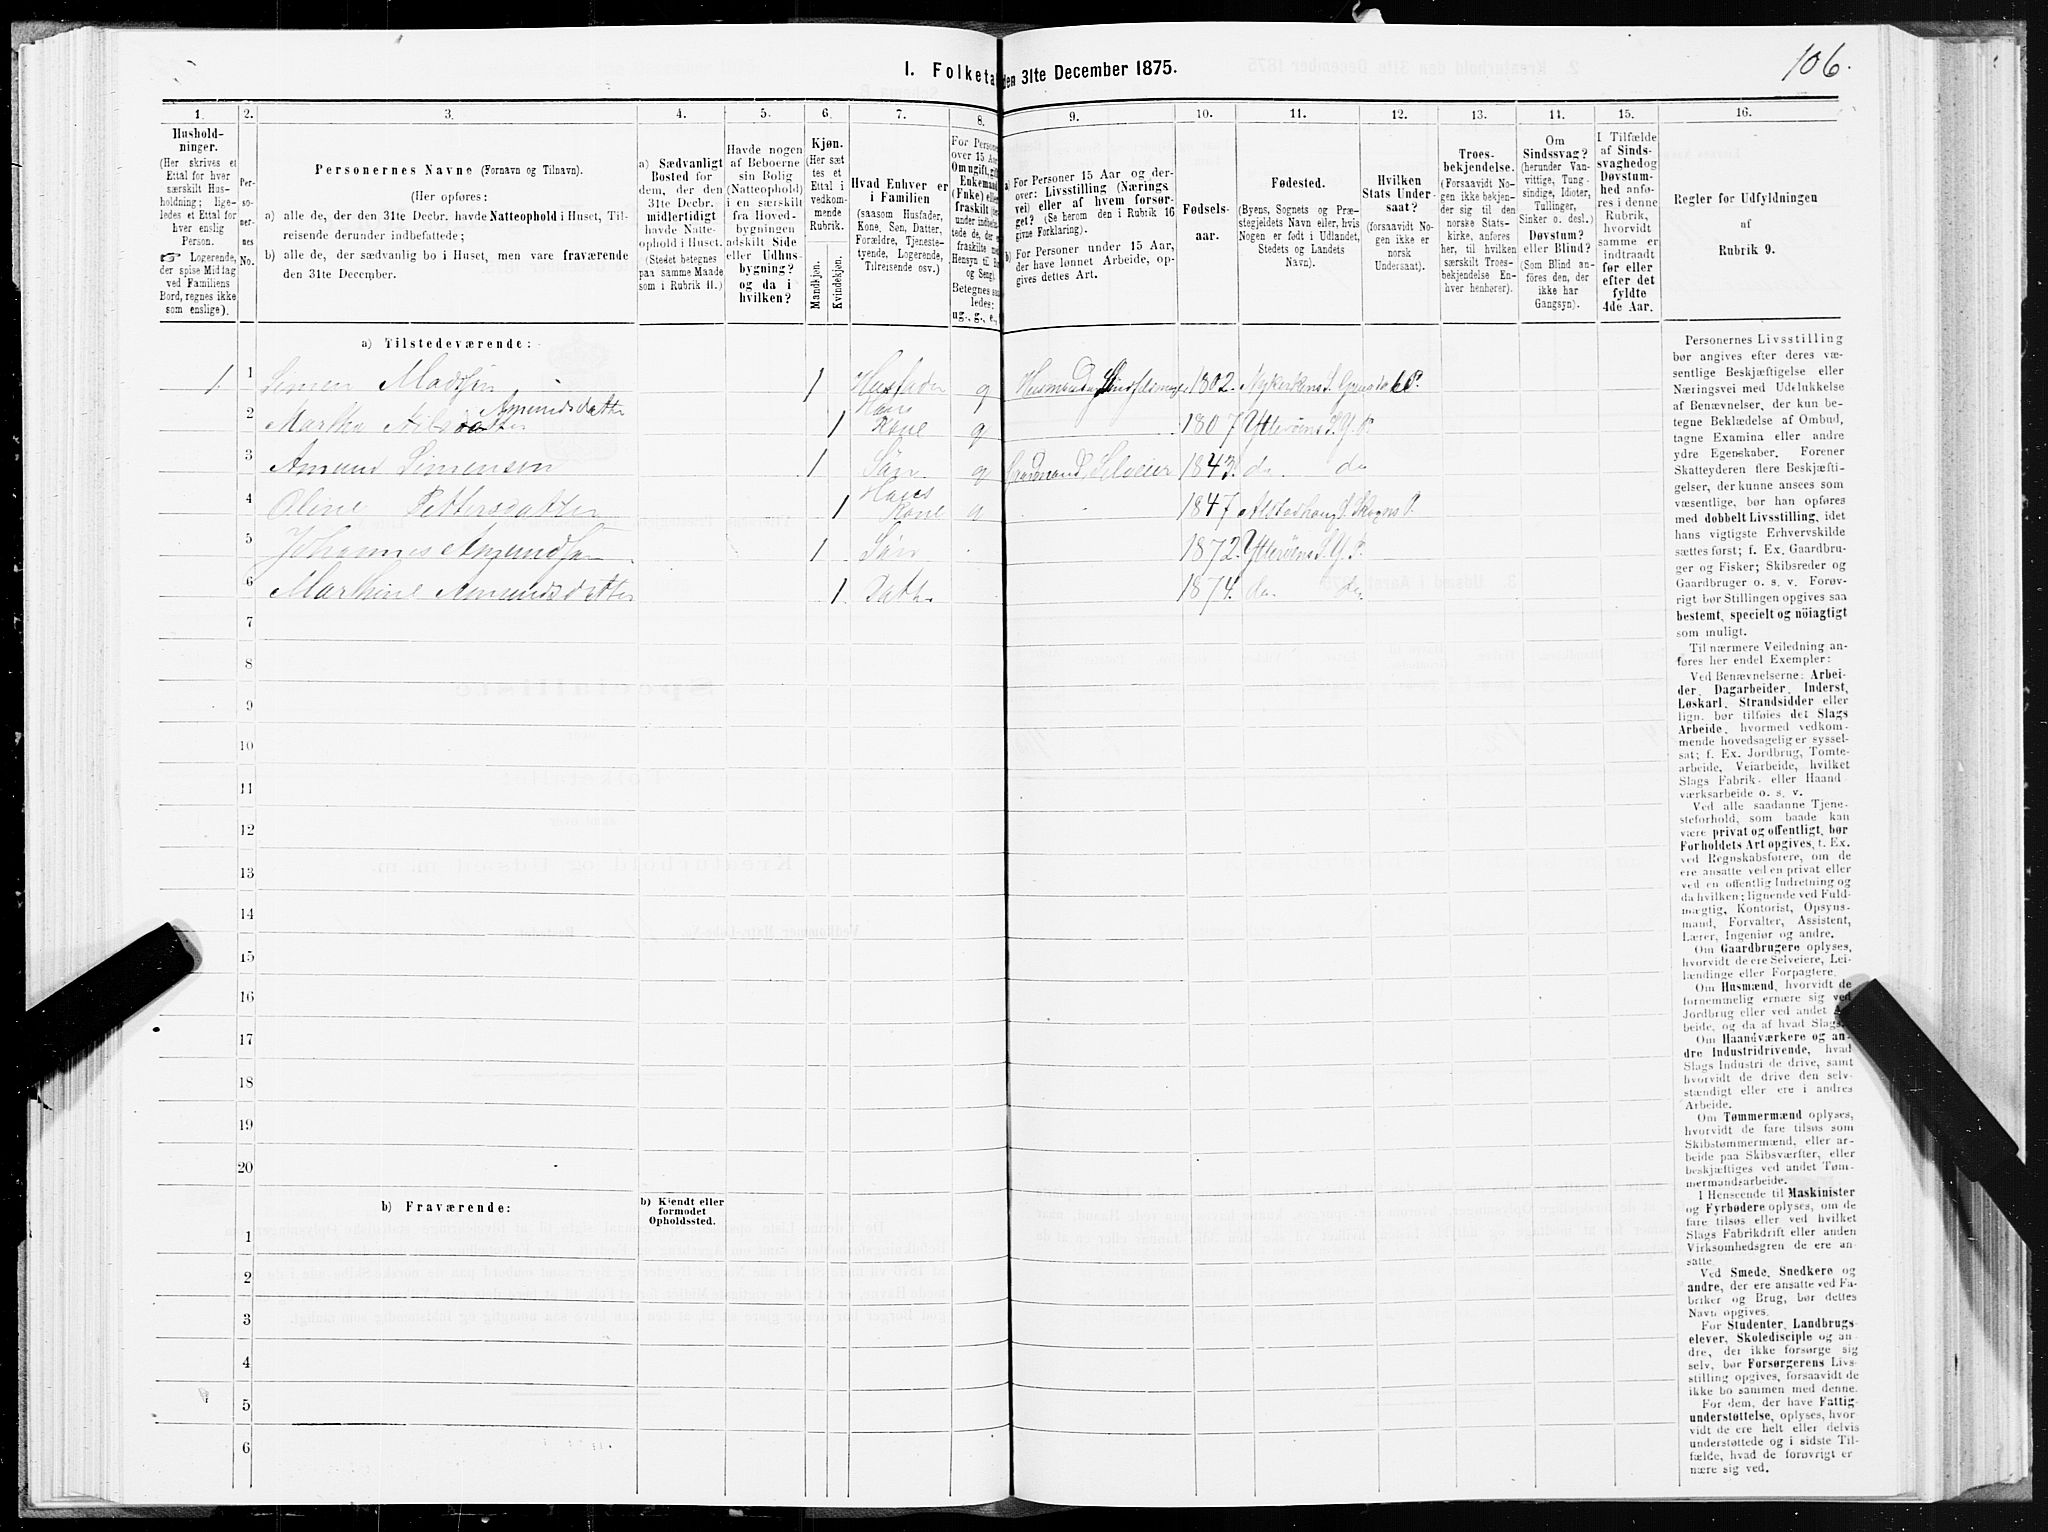 106.
I. Folketa
den 31te December 1875.
1. 2. 3. 4. 5. 6. 7. 8. 9. 10. 11. 12. 13. 14. 15. 16.
Hushold-
ninger.
(Her skrives et
Ettal for hver
særskilt Hus-
holdning; lige-
ledes et Ettal for
hver enslig
Person.
☞ Logerende,
der spise Middag
ved Familiens
Bord, regnes ikke
som enslige).
Per-
so-
ner-
nes
No.
Personernes Navne (Fornavn og Tilnavn).
(Her opføres:
a) alle de, der den 31te Decbr. havde Natteophold i Huset, Til-
reisende derunder indbefattede;
b) alle de, der sædvanlig bo i Huset, men vare fraværende
den 31te December.
a) Sædvanligt
Bosted for
dem, der den
31te Decbr.
midlertidigt
havde Natte-
ophold i Huset.
(Stedet betegnes
paa samme Maade
som i Rubrik 11.)
Havde nogen
af Beboerne
sin Bolig
(Natteophold)
i en særskilt
fra Hoved-
bygningen
adskilt Side
eller Udhus-
bygning?
og da i
hvilken?
Kjøn.
(Her sæt
tes et
Ettal i
vedkom-
mende
Rubrik.
Mandkjøn.
Kvindekjøn.
Hvad Enhver er
i Familien
(saasom Husfader,
Kone, Søn, Datter,
Forældre, Tjeneste-
tyende, Logerende,
Tilreisende osv.)
For Person
over 15 Aa
Om ugift, gif
Enkemand
(Enke) elle
fraskilt (de
under indbefa
tede de, der e
fraskilte me
Hensyn til Bo
og Seng)
Betegnes saa
ledes:
ug., g., e.,
a) For Personer 15 Aar og der-
over: Livsstilling (Nærings
vei) eller af hvem forsør-
get? (Se herom den i Rubrik 16
givne Forklaring).
b) For Personer under 15 Aar,
der have lønnet Arbeide, op-
gives dettes Art.
Fødsels-
aar.
Fødested.
(Byens, Sognets og Præ-
stegjeldets Navn eller, hvis
Nogen er født i Udlandet,
Stedets og Landets
Navn).
Hvilken
Stats Under-
saat?
(forsaavidt No-
gen ikke er
norsk
Undersaat).
Troes-
bekjendelse.
(Forsaavidt No-
gen ikke bekjen-
der sig til den
norske Stats-
kirke, anføres
her, til hvilken
særskilt Troes-
bekjendelse En-
hver henhører).
Om
Sindssvag?
(herunder Van-
vittige, Tung-
sindige, Idioter,
Tullinger,
Sinker o. desl.)
Døvstum?
eller Blind?
(Som Blind an-
føres den, der
ikke har
Gangsyn).
I Tilfælde
af Sinds-
svaghed og
Døvstum-
hed anfø-
res i denne
Rubrik,
hvorvidt
samme er
indtraadt
før eller
efter det
fyldte
4de Aar.
Regler for Udfyldningen
af
Rubrik 9.
a) Tilstedeværende:
1. 1 Simen Madssen 1 Husfader g 1802. P.
Amundsdatter
2 Martha Nilsdatter 1 Hans Kone g 1807 Ytterøens S. Y. P.
3 Amund Simensen 1 Søn g Gaardmand Selveier 1843. do. do
4 Oline Pettersdatter 1 Hans Kone g 1847 Alstadhoug S. Skogns P.
5 Johannes Amundsen 1 Søn 1872. Ytterøens S. Y. P.
6 Marthine Amundsdatter 1 Datter 1874. do. do.
7
8
9
10
11
12
13
14
15
16
17
18
19
20
b) Fraværende:
b) Kjendt eller
formodet
Opholdssted.
1
2
3
4
5
6
Personernes Livsstilling
bør angives efter deres væ-
sentlige Beskjæftigelse eller
Næringsvei med Udelukkelse
af Benævnelser, der kun be-
tegne Beklædelse af Ombud,
tagne Examina eller andre
ydre Egenskaber. Forener
Skatteyderen flere Beskjæfti-
gelser, der kunne ansees som
væsentlige, bør han opføres
med dobbelt Livsstilling, idet
hans vigtigste Erhvervskilde
sættes først; f. Ex. Gaardbru-
ger og Fisker; Skibsreder og
Gaardbruger o. s. v. Forøv-
rigt bør Stillingen opgives saa
bestemt, specielt og nöiagtigt
som muligt.
Til nærmere Veiledning an-
føres her endel Exempler:
Ved Benævnelserne: Arbei-
der, Dagarbeider, Inderst,
Løskarl, Strandsidder eller
lign. bør tilføies det Slags
Arbeide, hvormed vedkom-
mende hovedsagelig er syssel-
sat; f. Ex. Jordbrug, Tomte-
arbeide, Veiarbeide, hvilket
Slags Fabrik- eller Haand-
værksarbeide o. s. v.
Ved alle saadanne Tjene-
steforhold, som baade kan
være privat og offentligt, bør
Forholdets Art opgives, t. Ex.
ved Regnskabsførere, om de
ere ansatte ved en privat eller
ved en offentlig Indretning og
da hvilken; lignende ved Fuld-
mægtig, Kontorist, Opsyns-
mand, Forvalter, Assistent,
Lærer, Ingeniør og andre.
Om Gaardbrugere oplyses,
hvorvidt de ere Selveiere, Lei-
lændinge eller Forpagtere.
Om Husmænd, hvorvidt de
fornemmelig ernære sig ved
Jordbrug eller ved andet Ar-
beide, og da af hvad Slags.
Om Haandværkere og an-
dre Industridrivende, hvad
Slags Industri de drive, samt
hvorvidt de drive den selv-
stændigt eller ere i andres
Arbeide.
Om Tømmermænd oplyses,
hvorvidt de fare tilsøs som
Skibstømmermænd, eller ar-
beide paa Skibsværfter, eller
beskjæftiges ved andet Tøm-
mermandsarbeide.
I Henseende til Maskinister
og Fyrbødere oplyses, om de
fare tilsøs eller ved hvilket
Slags Fabrikdrift eller anden
Virksomhedsgren de ere an-
satte.
Ved Smede, Snedkere og
andre, der ere ansatte ved Fa-
briker og Brug, bør dettes
Navn opgives.
For Studenter, Landbrugs-
elever, Skoledisciple og an-
dre, der ikke forsørge sig
selv, bør Forsørgerens Livs-
stilling opgives, forsaavidt de
ikke bo sammen med denne.
For dem, der have Fattig-
understøttelse, oplyses, hvor-
vidt de ere helt eller delvis
understøttede og i sidste Til-
fælde, hvad de forøvrigt er-
nære sig ved.